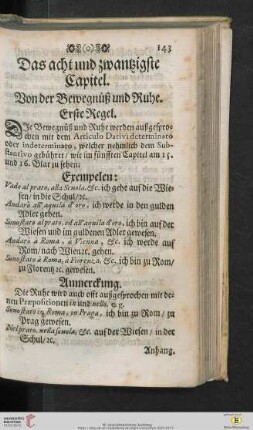 (o) 143
Das acht und zwantzigste
Capitel.
Von der Bewegnüß und Ruhe.
Erste Regel.
DIe Bewegnüß und Ruhe werden außgespro-
chen mit dem Articulo Dativi determinato
oder indeterminato, welcher nehmlich dem Sub-
stantivo gebühret/ wie im fünfften Capitel am 15.
und 16. Blat zu sehen:
Exempelen:
Vado al prato, alla Scuola, &c. ich gehe auf die Wie-
sen/ in die Schul/ꝛc.
Andarò all'aquila d'oro, ich werde in den gulden
Adler gehen.
Sono stato al prato, ed all'aquila d'oro, ich bin auf der
Wiesen und im guldenen Adler gewesen.
Andarò à Roma, à Vienna, &c. ich werde auf
Rom/ nach Wien ꝛc. gehen.
Sono stato à Roma, à Fiorenza, &c. ich bin zu Rom/
zu Florentz ꝛc. gewesen.
Anmerckung.
Die Ruhe wird auch offt außgesprochen mit de-
nen Præpositionen in und nello, e. g.
Sono stato in Roma, in Praga, ich bin zu Rom/ zu
Prag gewesen.
Nel prato, nella scuola, &c. auf der Wiesen/ in der
Schul/ꝛc.
Anhang.